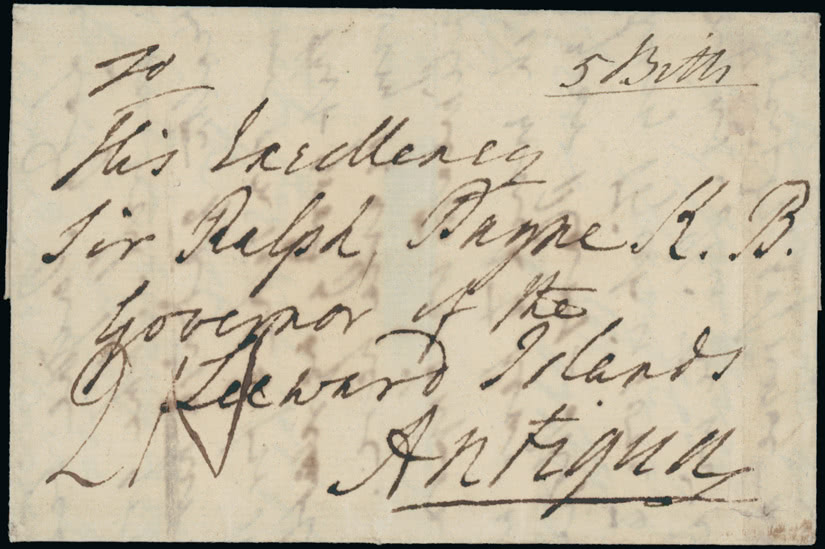 To
5 Bitts
His Excellency
Sir Ralph Payne K. B.
Governor of the
Leeward Islands
Antigua